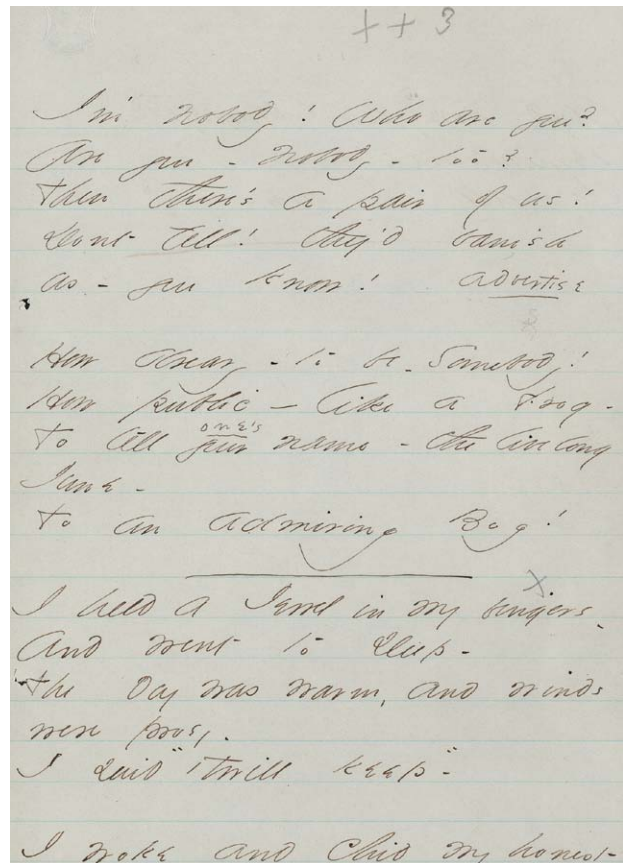 + + 3
I'm Nobody! Who are you?
Are you - Nobody - too?
Then there's a pair of us!
Dont tell! they'd banish
us - you know! advertise
How dreary - to be - Somebody!
How public - like a Frog -
one's
To tell your name - the livelong
June -
To an admiring Bog!
x
I held a Jewel in my fingers
And went to sleep -
The day was warm, and winds
were prosy -
I said "'Twill keep" -
I woke and chid my honest